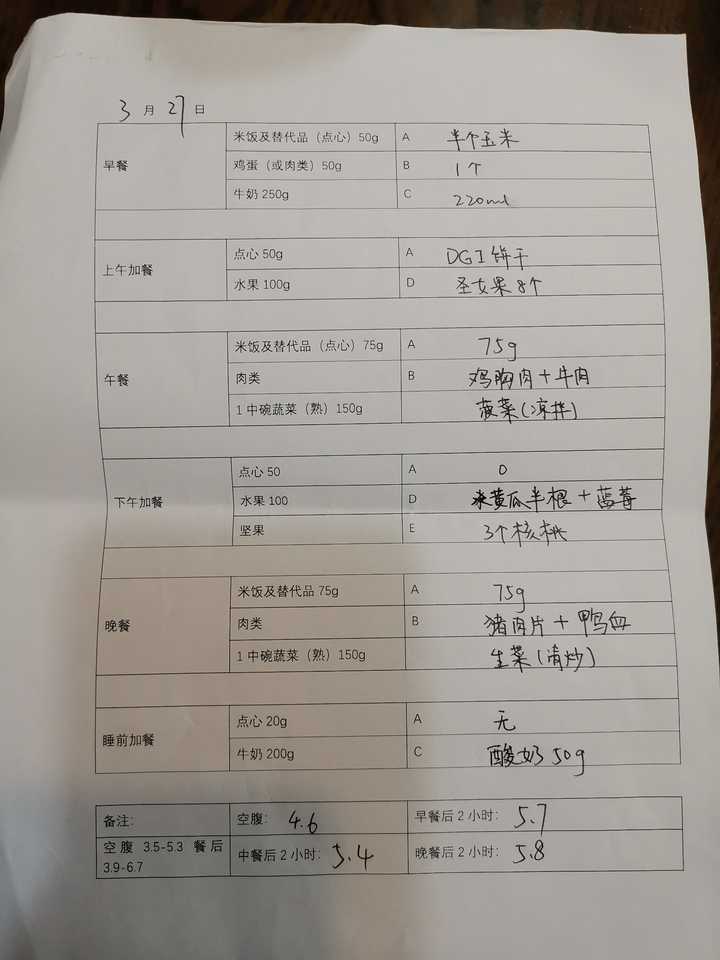 3月27日
早餐 米饭及替代品（点心）50g A 半个玉米
鸡蛋（或肉类）50g B 1个
牛奶 250g C 220ml
上午加餐 点心 50g A DGI饼干
水果 100g D 圣女果8个
午餐 米饭及替代品（点心）75g A 75g
肉类 B 鸡胸肉+牛肉
1 中碗蔬菜（熟）150g 菠菜(凉拌)
下午加餐 点心 50 A 0
水果 100 D 黄瓜半根+蓝莓
坚果 E 3个核桃
晚餐 米饭及替代品 75g A 75g
肉类 B 猪肉片+鸭血
1 中碗蔬菜（熟）150g 生菜(清炒)
睡前加餐 点心 20g A 无
牛奶 200g C 酸奶50g
备注: 空腹: 4.6 早餐后 2 小时: 5.7
空腹 3.5-5.3 餐后 3.9-6.7 中餐后 2 小时: 5.4 晚餐后 2 小时: 5.8